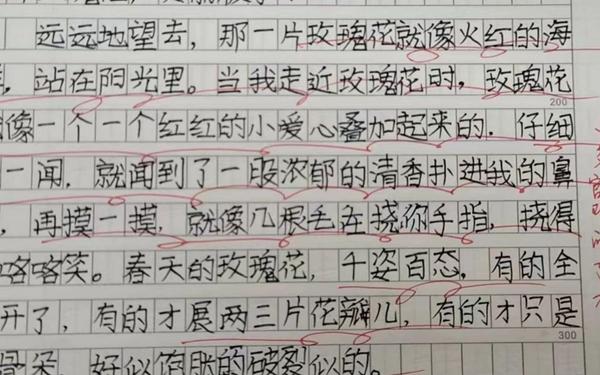 远远地望去，那一片玫瑰花就像火红的海
，站在阳光里。当我走近玫瑰花时，玫瑰花
200
像一个一个红红的小爱心叠加起来的.仔细
一闻，就闻到了一股浓郁的清香扑进我的鼻
，再摸一摸，就像几根毛在挠你手指，挠得
咯咯笑。春天的玫瑰花，千姿百态，有的全
开了，有的才展两三片花瓣儿，有的才只是
300
骨朵，好似饱胀的破裂似的。